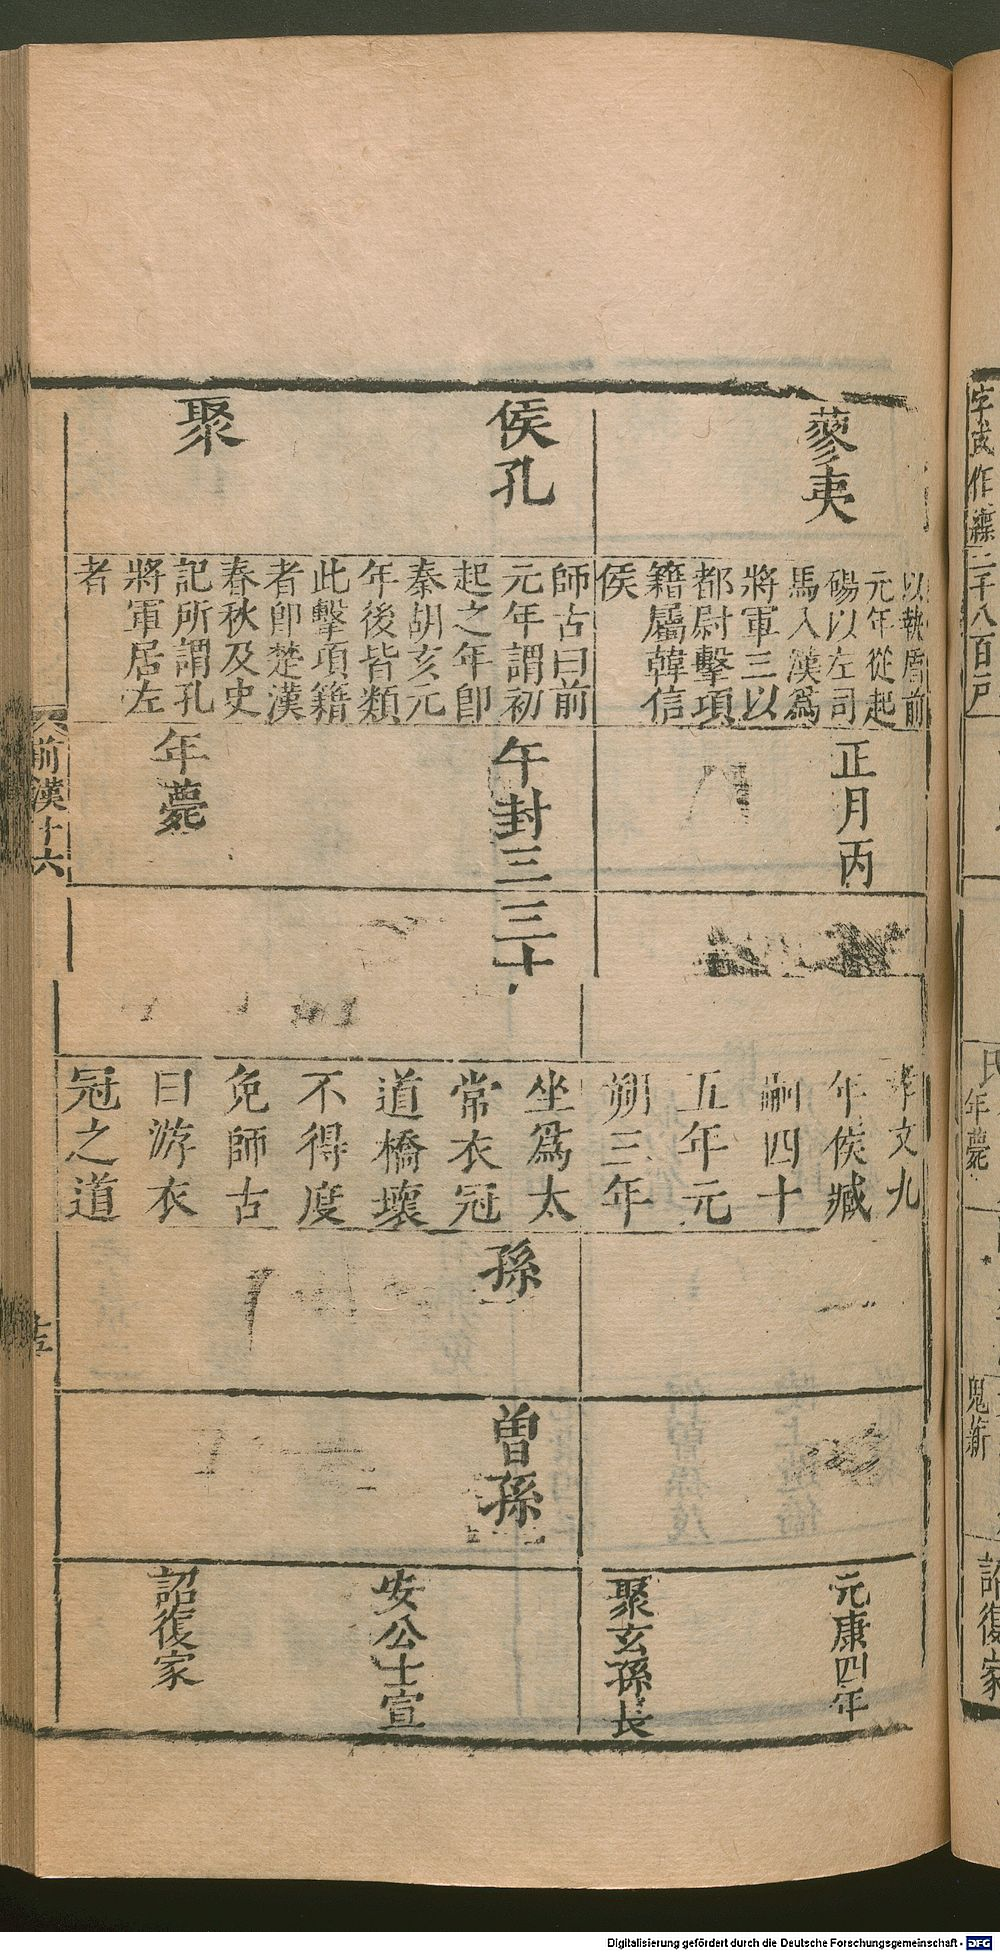 蓼夷
侯孔
聚
以執盾前
元年從起
碭以左司
馬入漢爲
將軍三以
都尉擊項
籍屬韓信
侯
師古曰前
元年謂初
起之年即
秦胡亥元
年後皆類
此擊項籍
者即楚漢
春秋及史
記所謂孔
將軍居左
者
正月丙
午封三
年薨
三十
孝文九
年侯臧
嗣四十
五年元
朔三年
坐爲太
常衣冠
道橋壞
不得度
免師古
曰游衣
冠之道
孫
曾孫
元康四年
聚玄孫長
安公士宣
詔復家
前漢十六
字或作
二千八百戶
氏
年薨
鬼薪
詔復家
Digitalisierung gefördert durch die Deutsche Forschungsgemeinschaft - DFG